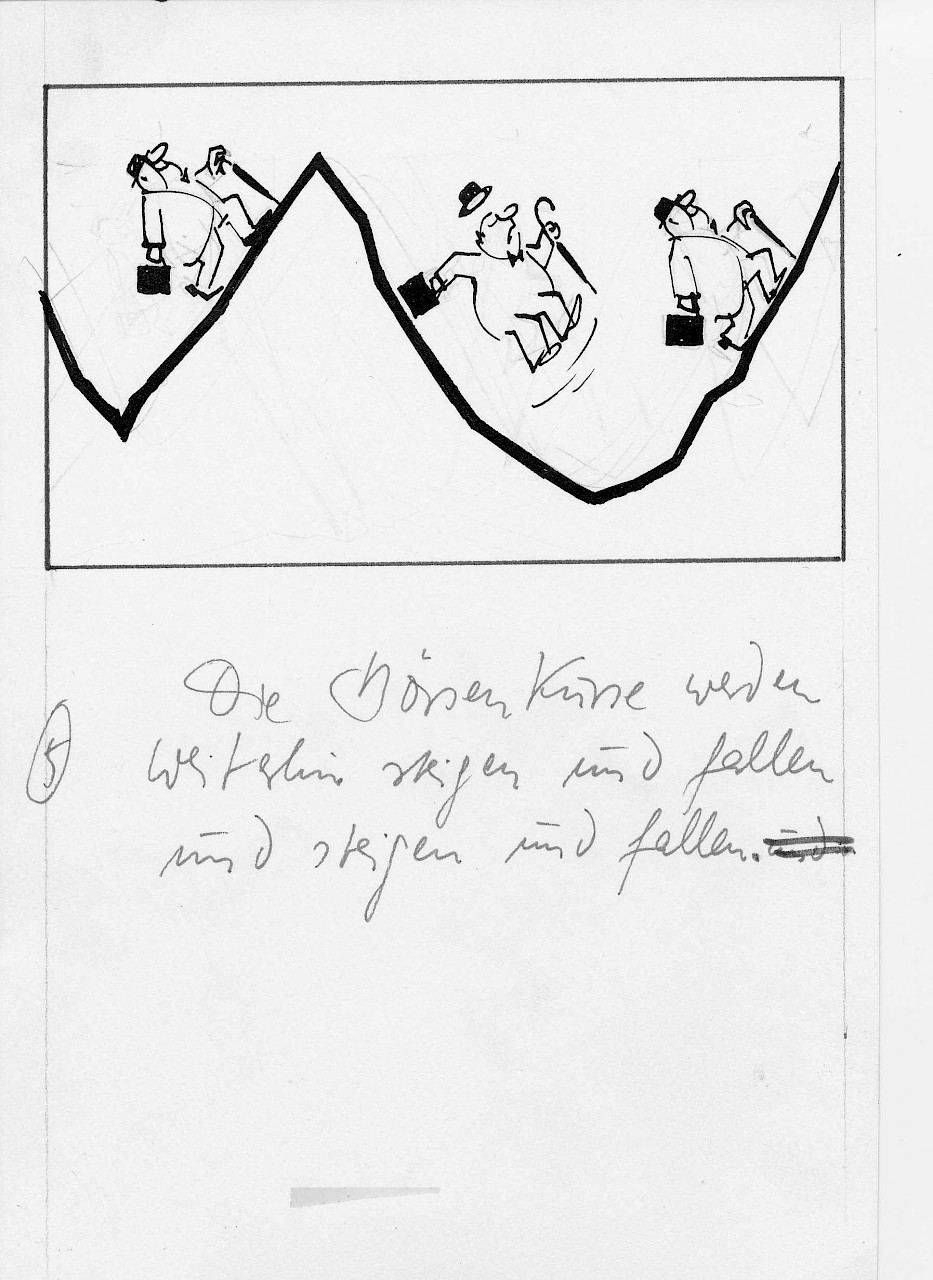 Die Börsenkurse werden
5 weiterhin steigen und fallen
und steigen und fallen. und